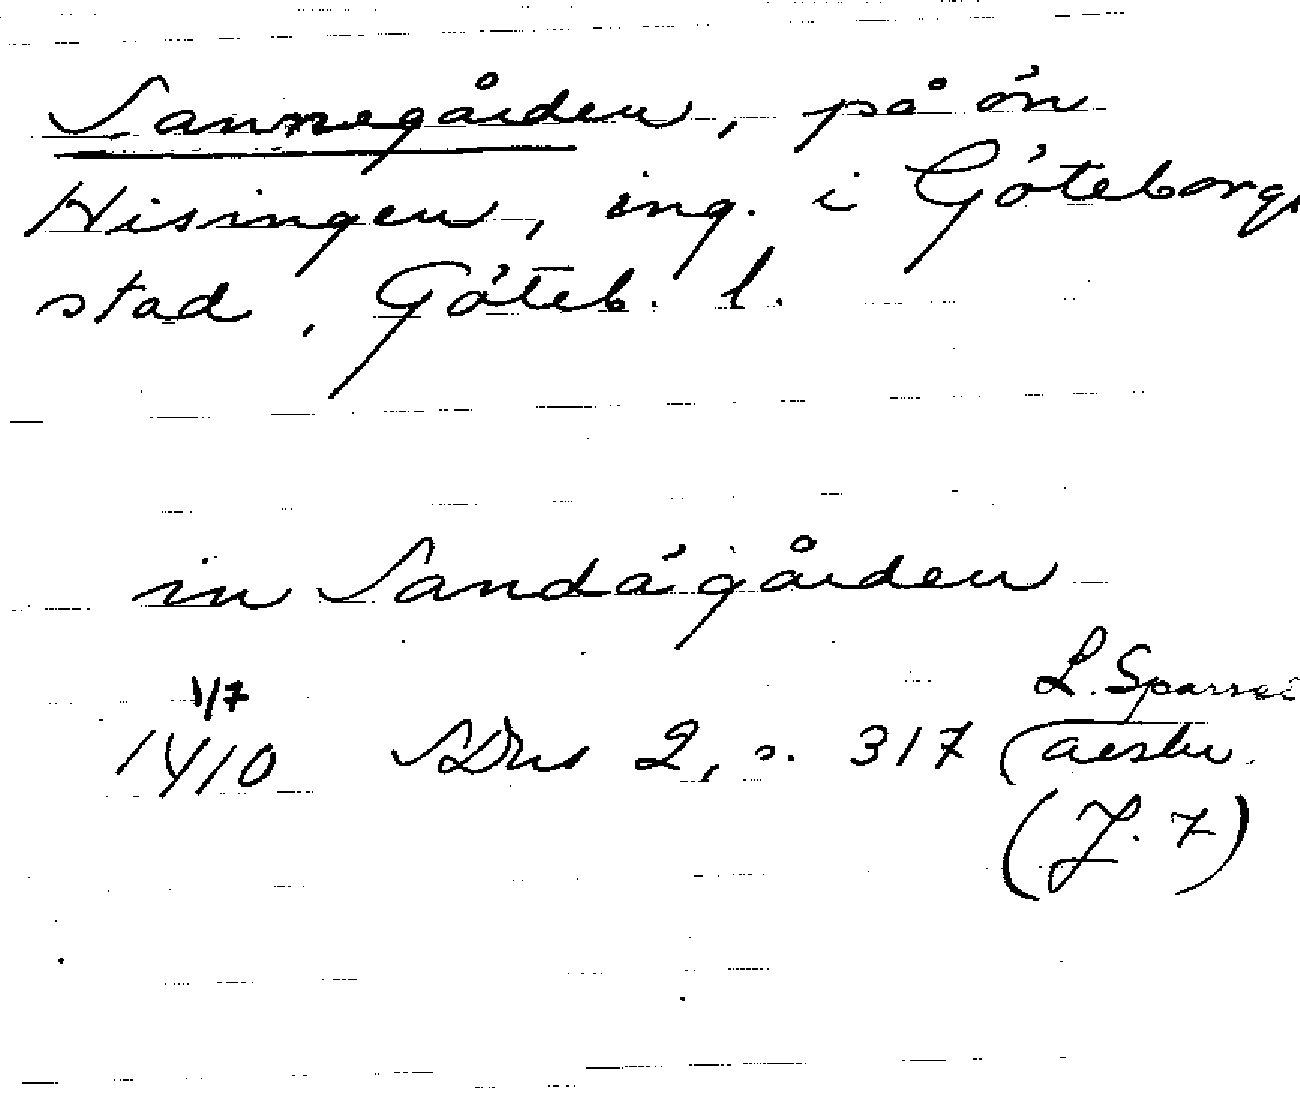 Sannegården, på ön
Hisingen, ing. i Göteborgs
stad, Göteb. l.
in Sandágården
1/7
1410 SDns 2, s. 317 (L. Sparres
(J. 7)